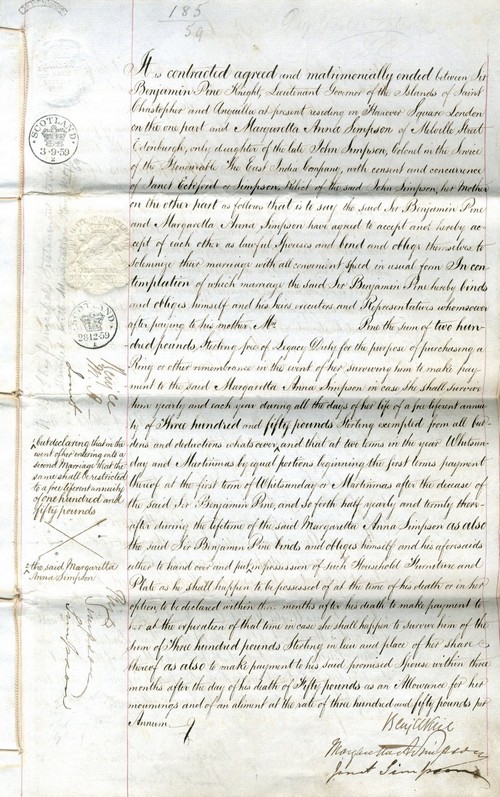 185
59
SCOTLAND
3·9·59
SCOTLAND
28 12·59
It is contracted agreed and matrimonially ended between Sir
Benjamin Pine Knight, Lieutenant Governor of the Islands of Saint
Christopher and Anguilla at present residing in Hanover Square London
on the one part and Margaretta Anna Simpson of Melville Street
Edinburgh, only daughter of the late John Simpson, Colonel in the Service
of the Honourable The East India Company, with consent and concurrence
of Janet Eckford or Simpson, Relict of the said John Simpson, her Mother
on the other part as follows that is to say the said Sir Benjamin Pine
and Margaretta Anna Simpson have agreed to accept and hereby ac-
cept of each other as lawful Spouses and bind and oblige themselves to
solemnize their marriage with all convenient speed in usual form In con-
templation of which marriage the said Sir Benjamin Pine hereby binds
and obliges himself and his heirs executors and Representatives whomsoever
after paying to his mother Mrs Pine the sum of two hun-
dred pounds, Sterling free of Legacy Duty for the purpose of purchasing a
Ring or other remembrance in the event of her surviving him to make pay-
ment to the said Margaretta Anna Simpson in case she shall survive
him yearly and each year during all the days of her life of a free liferent annui-
ty of Three hundred and fifty pounds Sterling exempted from all bur-
dens and deductions whatsoever, and that at two terms in the year Whitsun-
day and Martinmas by equal portions beginning the first terms payment
thereof at the first term of Whitsunday or Martinmas after the decease of
the said Sir Benjamin Pine, and so forth half yearly and termly there-
after during the lifetime of the said Margaretta Anna Simpson as also
the said Sir Benjamin Pine binds and obliges himself and his aforesaids
either to hand over and put in possession of such Household Furniture and
Plate as he shall happen to be possessed of at the time of his death or in her
option to be declared within three months after his death to make payment to
her at the expiration of that time in case she shall happen to survive him of the
sum of Three hundred pounds Sterling in lieu and place of her share
thereof as also to make payment to his said promised Spouse within three
months after the day of his death of Fifty pounds as an Allowance for her
mournings and of an aliment at the rate of three hundred and fifty pounds per
Annum
but declaring that in the
event of her entering into a
second Marriage that the
same shall be restricted
to a free liferent annuity
of one hundred and
fifty pounds
the said Margaretta
Anna Simpson
Benj. Pine
Margaretta A Simpson
Janet Simpson